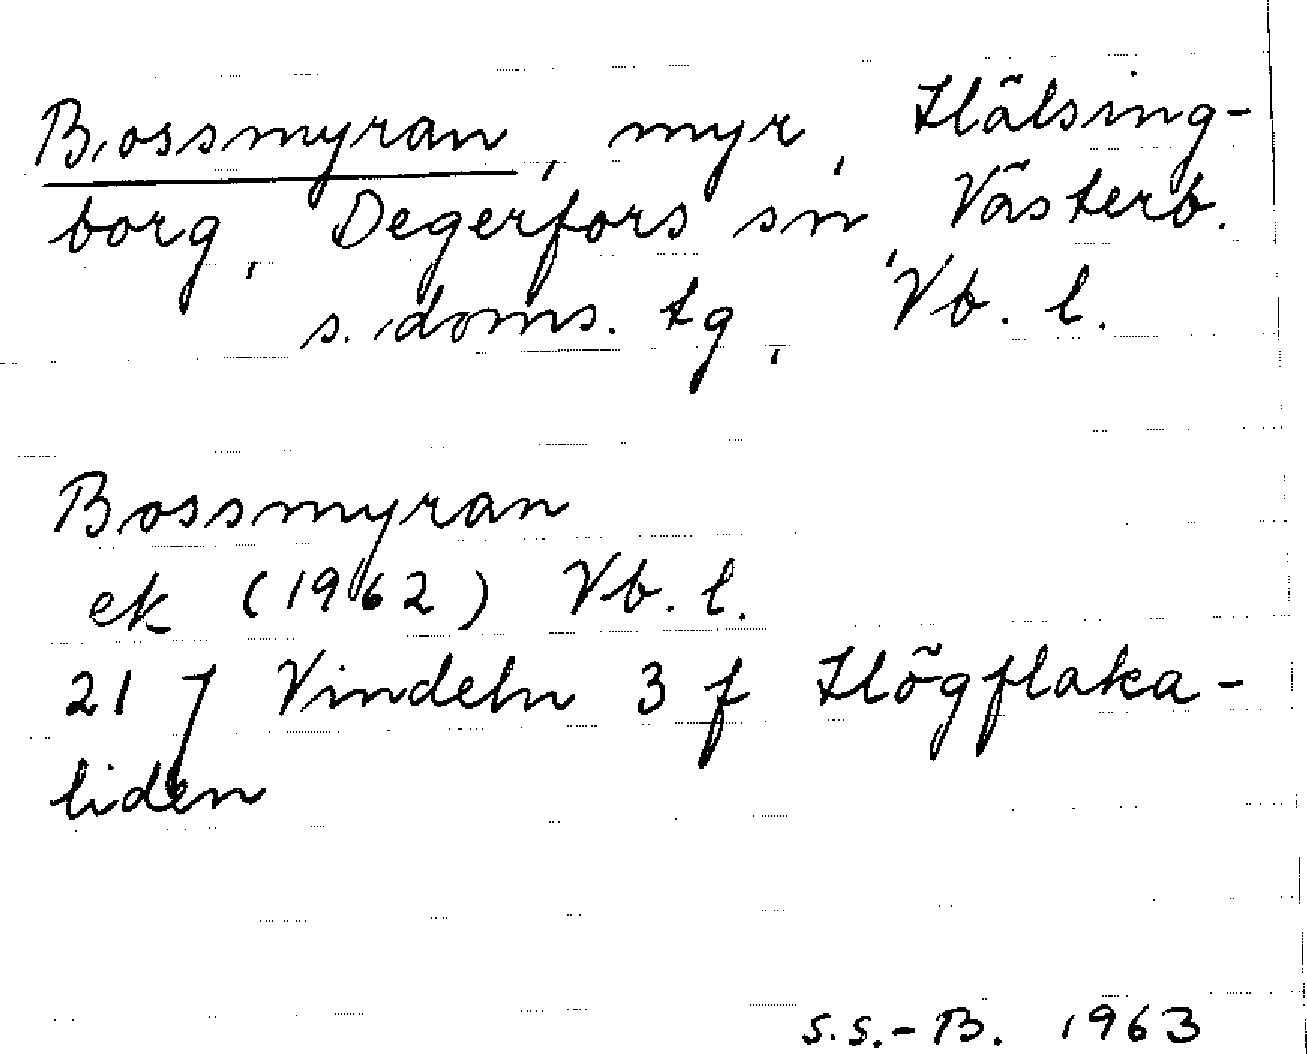 Bossmyran, myr, Hälsing-
borg, Degerfors sn, Västerb.
s. doms. tg, Vb. l.
Bossmyran
ek (1962) Vb. l.
21 J Vindeln 3 f Högflaka-
liden
S.S.-B. 1963